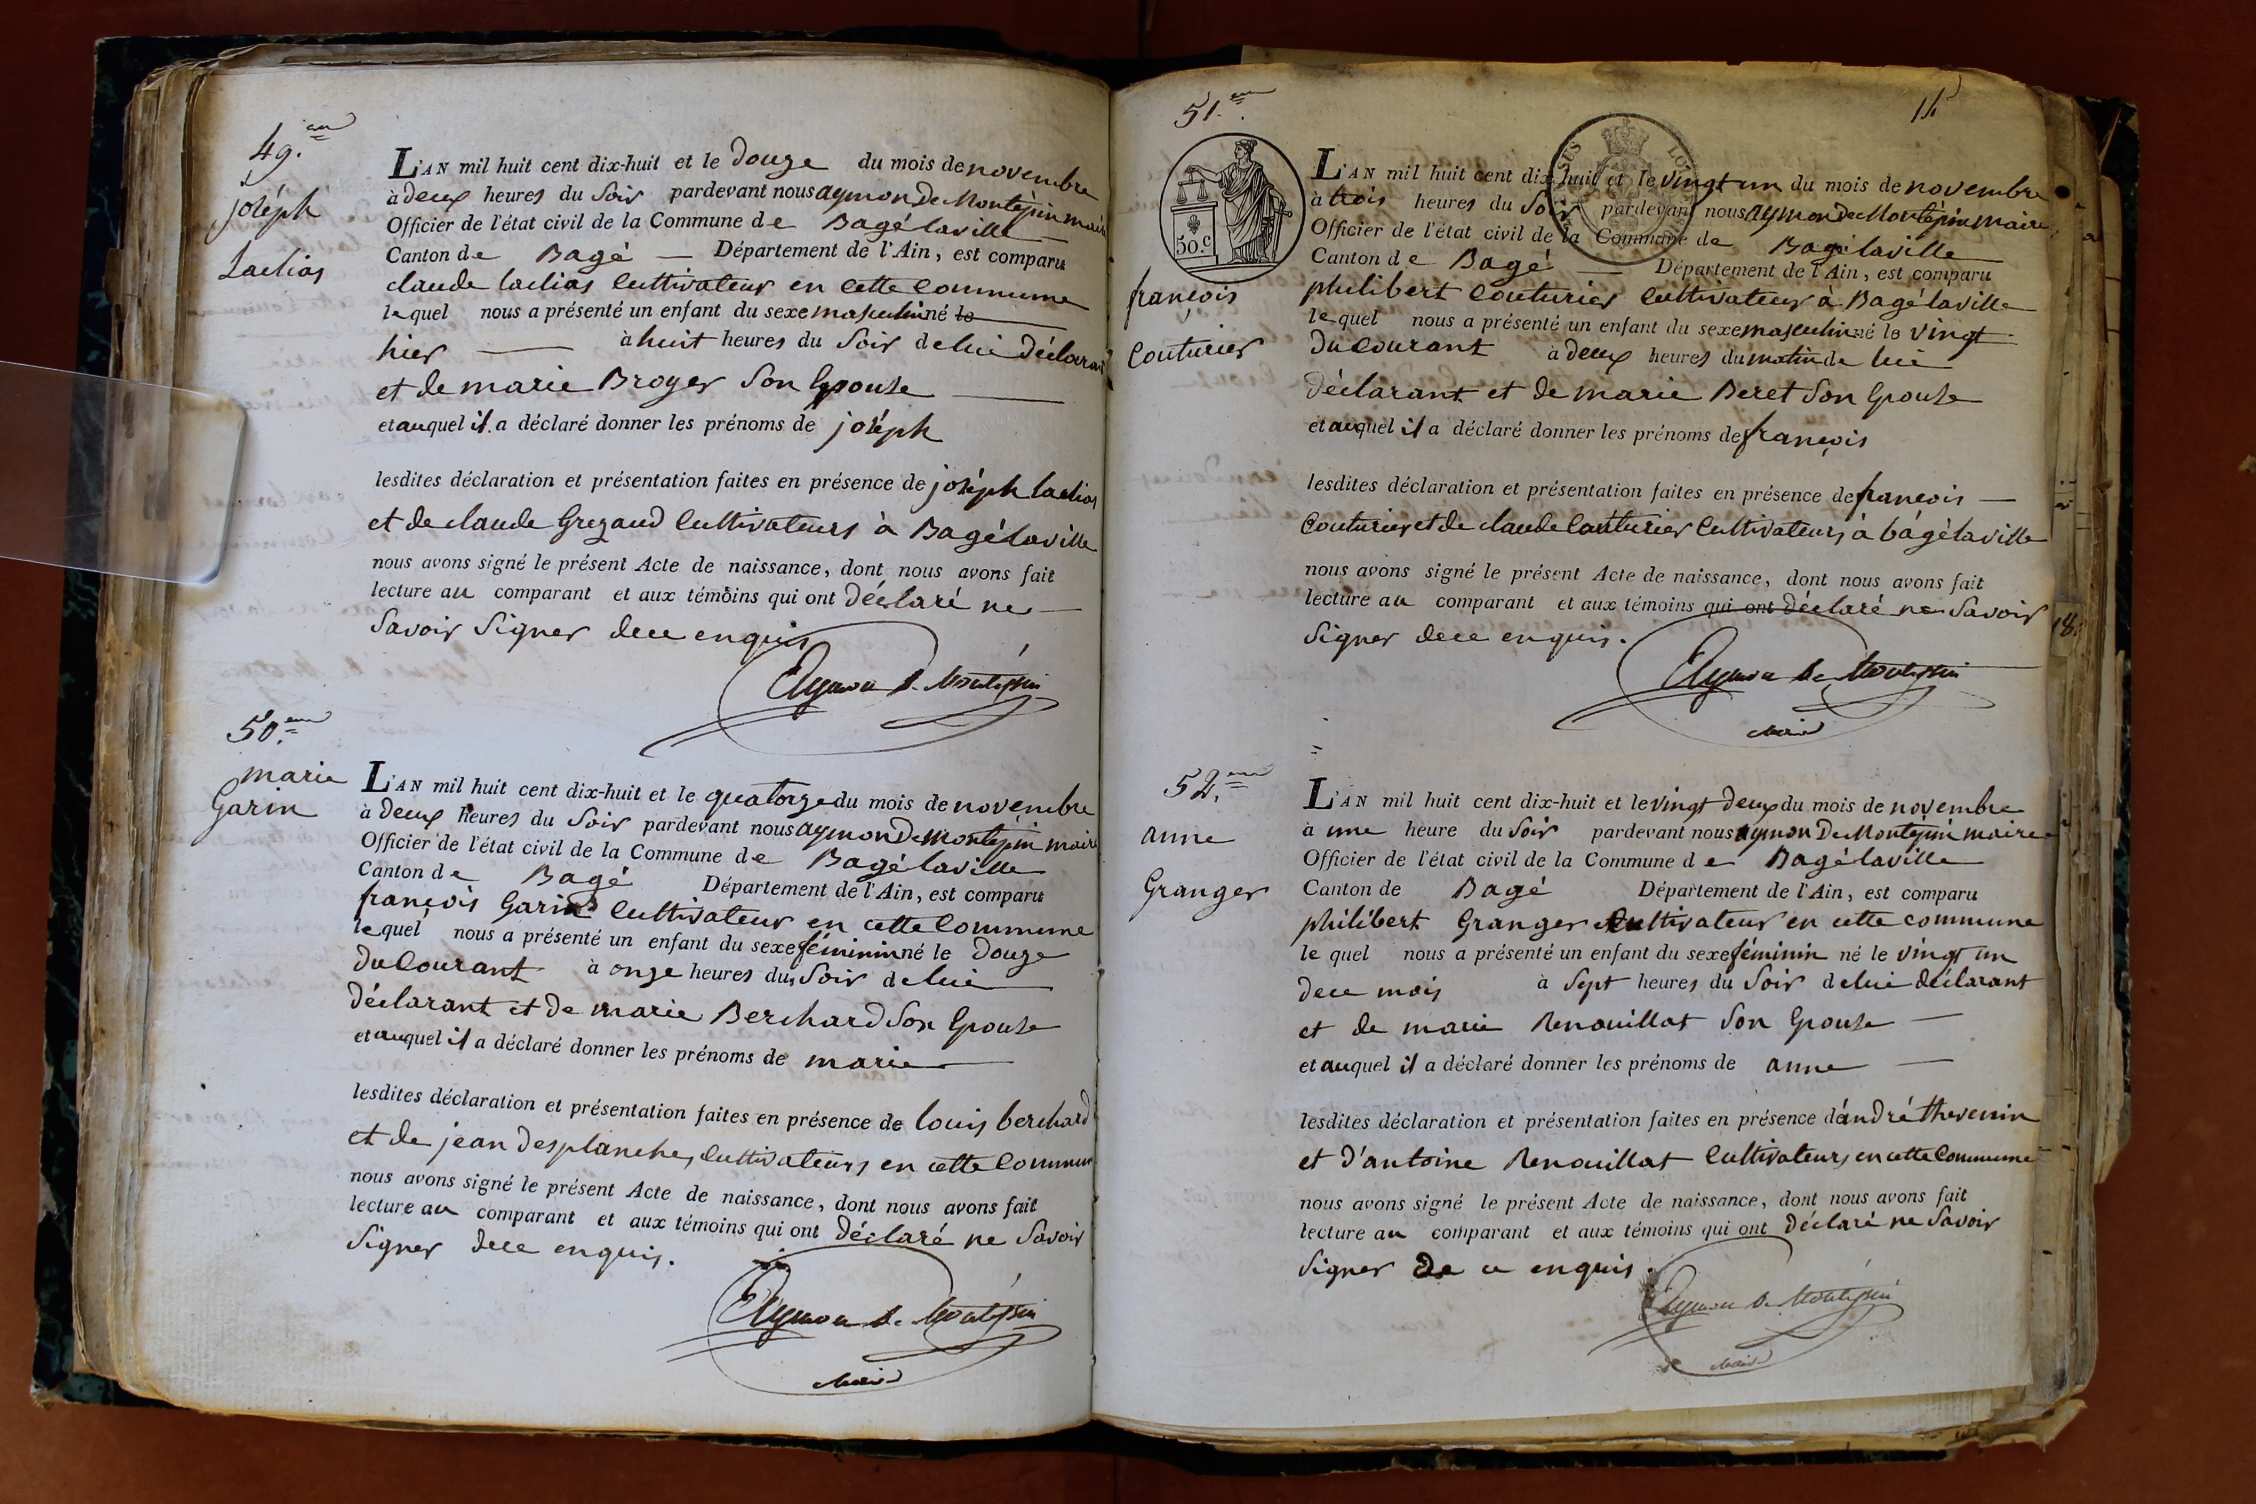 49.eme
joséph
Laclias
L'AN mil huit cent dix-huit et le douze du mois de novembre
à deux heures du Soir pardevant nous aymon De Montépin maire
Officier de l'état civil de la Commune de Bagélaville
Canton de Bagé — Département de l'Ain, est comparu
claude laclias Cultivateur en cette Commune
lequel nous a présenté un enfant du sexe masculin né le
hier à huit heures du Soir de lui Déclarant
et de marie Broyer Son Epouse
et auquel il a déclaré donner les prénoms de joséph
lesdites déclaration et présentation faites en présence de joséph laclias
et de claude Grezaud Cultivateurs à Bagélaville
nous avons signé le présent Acte de naissance, dont nous avons fait
lecture au comparant et aux témoins qui ont déclaré ne
Savoir Signer dece enquis
Aymon De Montépin
50.eme
marie
Garin
L'AN mil huit cent dix-huit et le quatorze du mois de novembre
à deux heures du Soir pardevant nous aymon De Montépin maire
Officier de l'état civil de la Commune de Bagélaville
Canton de Bagé Département de l'Ain, est comparu
françois Garin Cultivateur en cette Commune
lequel nous a présenté un enfant du sexe féminin né le Douze
du Courant à onze heures du Soir de lui
déclarant et de marie Berchard Son Epouse
et auquel il a déclaré donner les prénoms de marie
lesdites déclaration et présentation faites en présence de louis berchard
et de jean Desplanches, Cultivateurs en cette Commune
nous avons signé le présent Acte de naissance, dont nous avons fait
lecture au comparant et aux témoins qui ont Déclaré ne Savoir
Signer dece enquis.
Aymon De Montépin
Maire
51.eme
15
50.c
françois
Couturier
L'AN mil huit cent dix-huit et le vingt un du mois de novembre
à trois heures du Soir pardevant nous aymon De Montépin maire
Officier de l'état civil de la Commune de Bagélaville
Canton de Bagé — Département de l'Ain, est comparu
philibert Couturier Cultivateur à Bagélaville
lequel nous a présenté un enfant du sexe masculin né le vingt
du Courant à deux heures du matin de lui
déclarant et de marie Beret Son Epouse
et auquel il a déclaré donner les prénoms de françois
lesdites déclaration et présentation faites en présence de françois
Couturier et de claude Couturier Cultivateurs à bagélaville
nous avons signé le présent Acte de naissance, dont nous avons fait
lecture au comparant et aux témoins qui ont déclaré ne Savoir
Signer dece enquis.
Aymon De Montépin
Maire
18
52.eme
anne
Granger
L'AN mil huit cent dix-huit et le vingt deux du mois de novembre
à une heure du Soir pardevant nous aymon De Montépin maire
Officier de l'état civil de la Commune de Bagélaville
Canton de Bagé Département de l'Ain, est comparu
philibert Granger Cultivateur en cette commune
lequel nous a présenté un enfant du sexe féminin né le vingt un
dece mois à Sept heures du Soir de lui déclarant
et de marie Renouillat Son Epouse
et auquel il a déclaré donner les prénoms de anne
lesdites déclaration et présentation faites en présence d'andré thevenin
et D'antoine Renouillat Cultivateurs en cette Commune
nous avons signé le présent Acte de naissance, dont nous avons fait
lecture au comparant et aux témoins qui ont Déclaré ne Savoir
Signer De ce enquis.
Aymon De Montépin
Maire